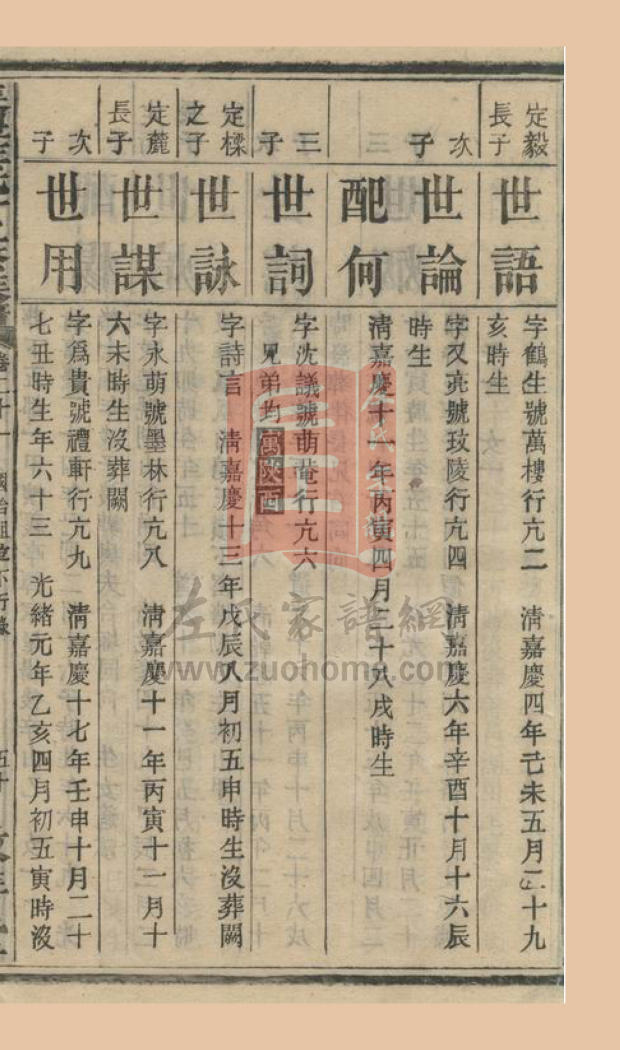 定毅
長子
世語
字鶴生號萬樓行亢二　清嘉慶四年己未五月二十九
亥時生
次子
世論
字又亮號玫陵行亢四　清嘉慶六年辛酉十月十六辰
時生
三
配何
清嘉慶十一年丙寅四月二十八戌時生
三子
世詞
字沈議號萌菴行亢六
兄弟均寓陝西
定樑
之子
世詠
字詩言　清嘉慶十三年戊辰八月初五申時生沒葬闕
定麓
長子
世謀
字永萌號墨林行亢八　清嘉慶十一年丙寅十一月十
六未時生沒葬闕
次子
世用
字爲貴號禮軒行亢九　清嘉慶十七年壬申十月二十
七丑時生年六十三　光緒元年乙亥四月初五寅時沒
卷二十一
左氏家譜網
www.zuohome.com